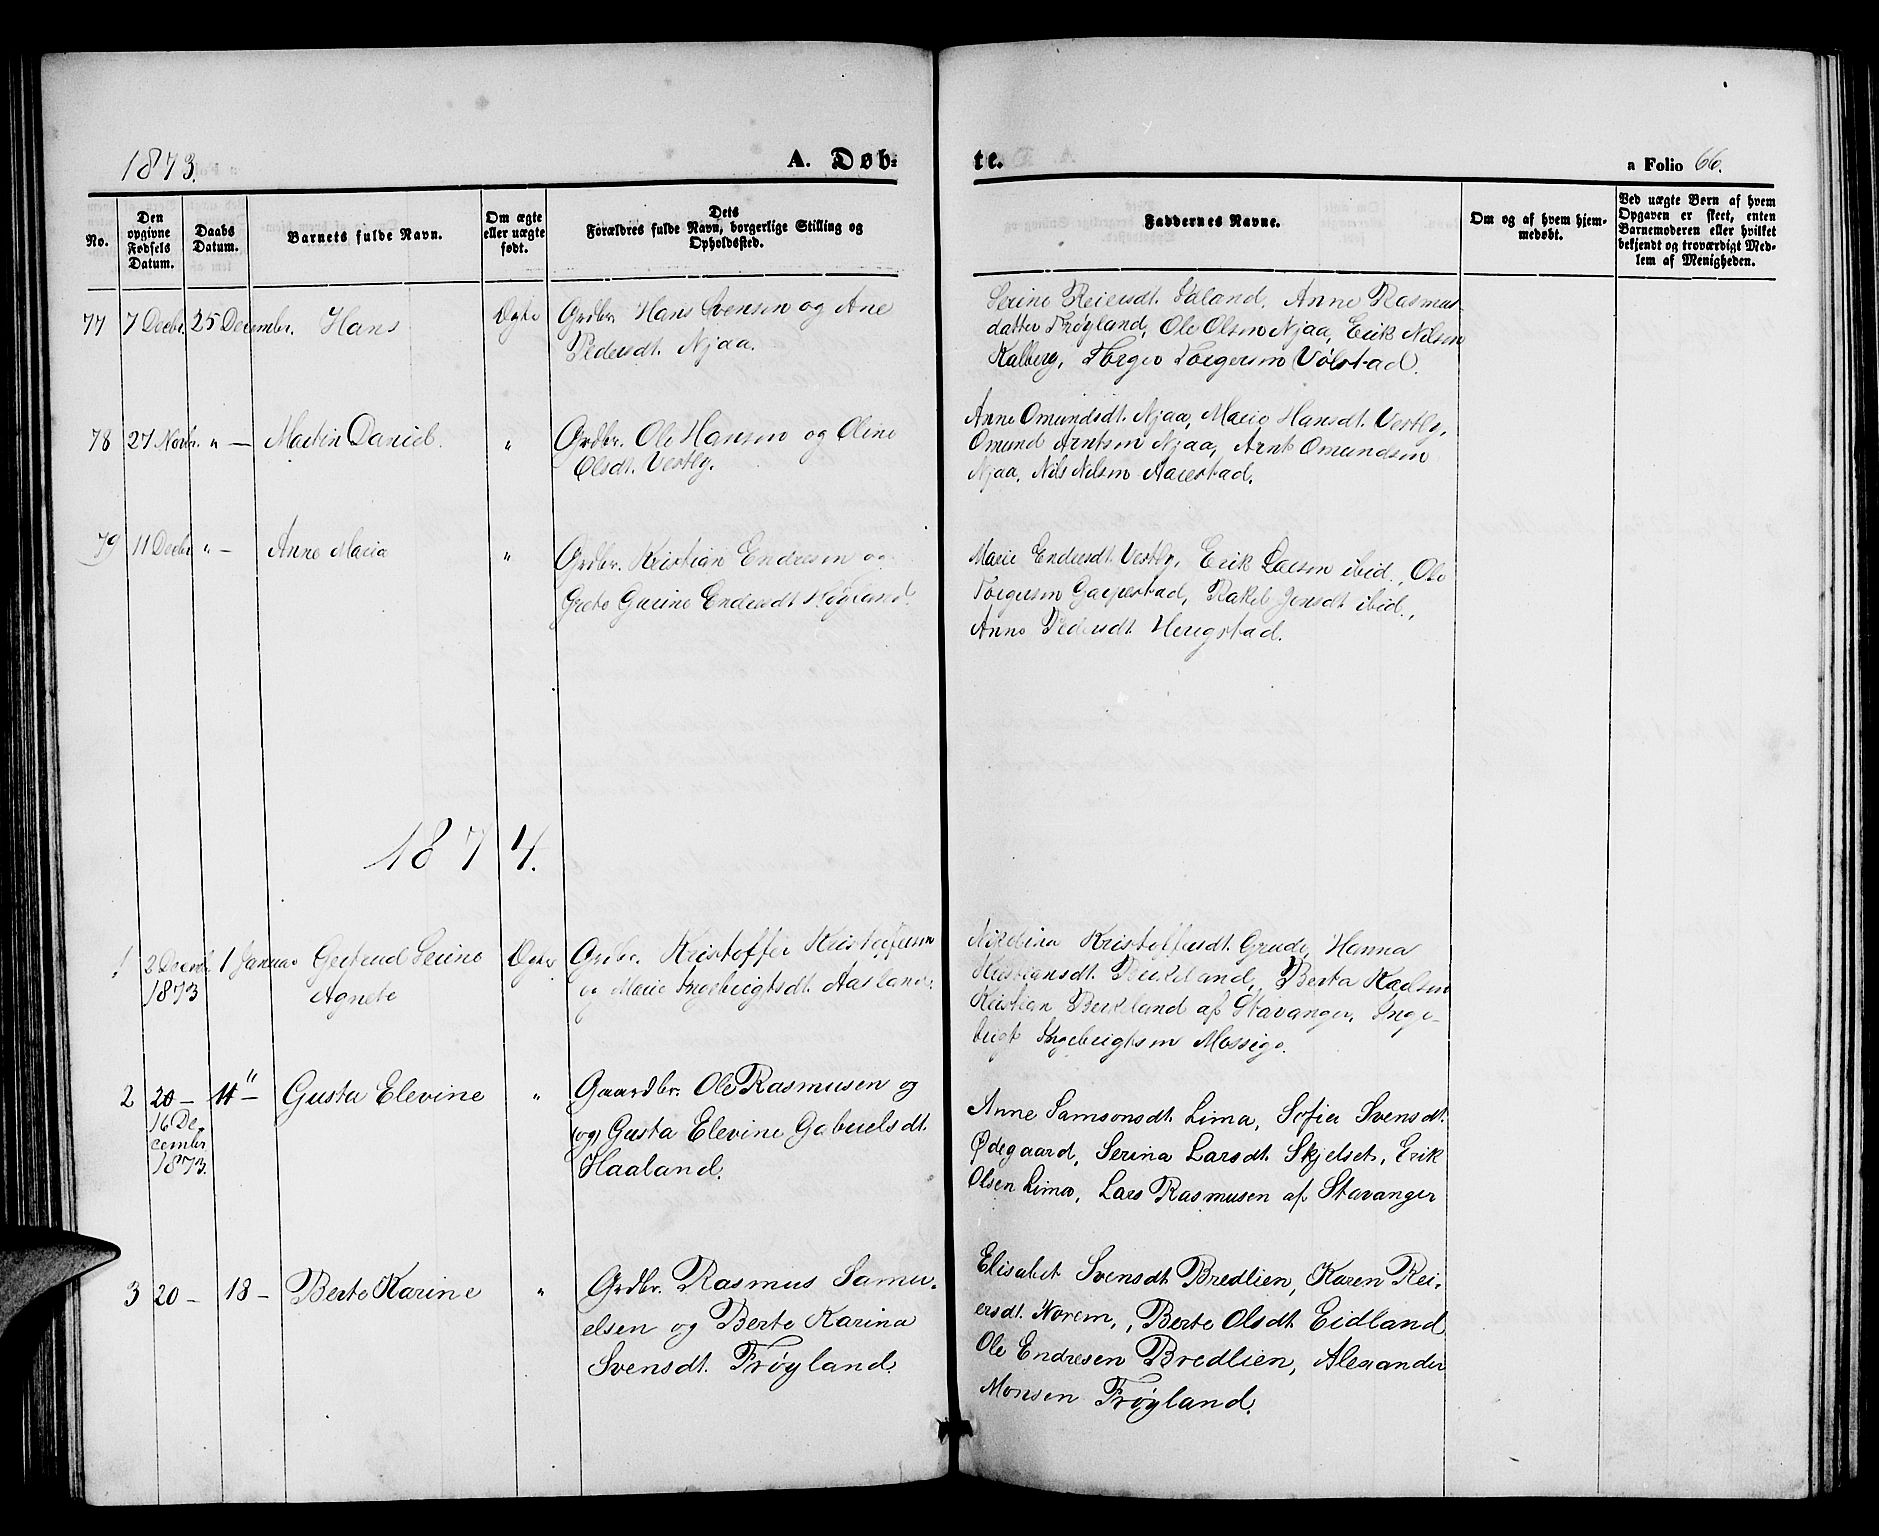 1873.
A. Døb-
te.
a Folio 66.
No.
Den opgivne Fødsels Datum.
Daabs Datum.
Barnets fulde Navn.
Om ægte eller uægte født.
Dets Forældres fulde Navn, borgerlige Stilling og Opholdssted.
Faddernes Navne.
Om og af hvem hjemmedøbt.
Ved uægte Børn af hvem Opgaven er skeet, enten Barnemoderen eller hvilket bekjendt og troværdigt Medlem af Menigheden.
77 7 Decbr. 25 December. Hans Ægte Grdbr. Hans Svensen og Ane
Pedersdt. Njaa.
Serine Reiersdt. Valand, Anne Rasmus
datter Frøyland, Ole Olsen Njaa, Erik Nilsen
Kalberg, Torger Torgersen Vølstad.
78 27 Novbr. " — Martin Daniel. " Grdbr. Ole Hansen og Oline
Olsdt. Vestly.
Anne Omundsdt. Njaa, Marie Hansdt. Vestly,
Omund Arntsen Njaa, Arnt Omundsen
Njaa, Nils Nilsen Aarestad.
79 11 Decbr. " — Anne Maria " Grdbr. Kristian Endresen og
Grete Gurine Endresdt Høyland.
Marie Endresdt. Vestly, Erik Larsen ibid., Ole
Torgersen Garpestad, Rakel Jensdt ibid.,
Anne Pedersdt. Herigstad.
1874.
1 2 Decmbr. 1 Januar Gertrud Serine Ægte Grdbr. Kristoffer Kristoffersen
1873 Agnete og Marie Ingebrigtsdt. Aasland.
Nikolina Kristoffersdt. Grude, Hanna
Kristiansdt. Birkeland, Berta Karlsen
Kristian Birkeland af Stavanger, Inge-
brigt Ingebrigtsen Mossige.
2 20 — 11 — Gusta Elevine " Gaardbr. Ole Rasmusen og
16 De-
cembr
1873.
(og) Gusta Elevine Gabrielsdt.
Haaland.
Anne Samsonsdt. Lima, Sofia Svensdt.
Ødegaard, Serina Larsdt. Skjelset, Erik
Olsen Lima, Lars Rasmusen af Stavanger
3 20 — 18 — Berte Karine " Grdbr. Rasmus Samu-
elsen og Berte Karina
Svensdt. Frøyland.
Elisabet Svensdt. Bredlien, Karen Rei-
ersdt. Norem, Berte Olsdt. Eidland
Ole Endresen Bredlien, Alexander
Monsen Frøyland.